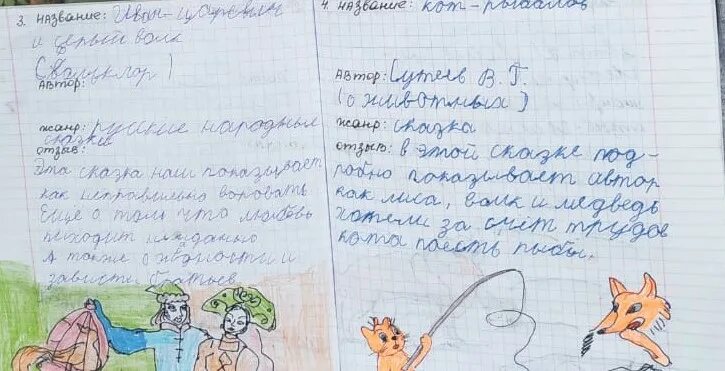 3. название: Иван-царевич
и серый волк
(
автор:
жанр: русские народные
сказки
отзыв:
Эта сказка нам показывает
как неправильно воровать
Ещё о том что любовь
приходит
А также о жадности и
зависти братьев
4. название: кот-рыболов
автор: Сутеев В. Г.
(о животных)
жанр: сказка
отзыв: в этой сказке под-
робно показывает автор
как лиса, волк и медведь
хотели за счёт трудов
кота поесть рыбы.